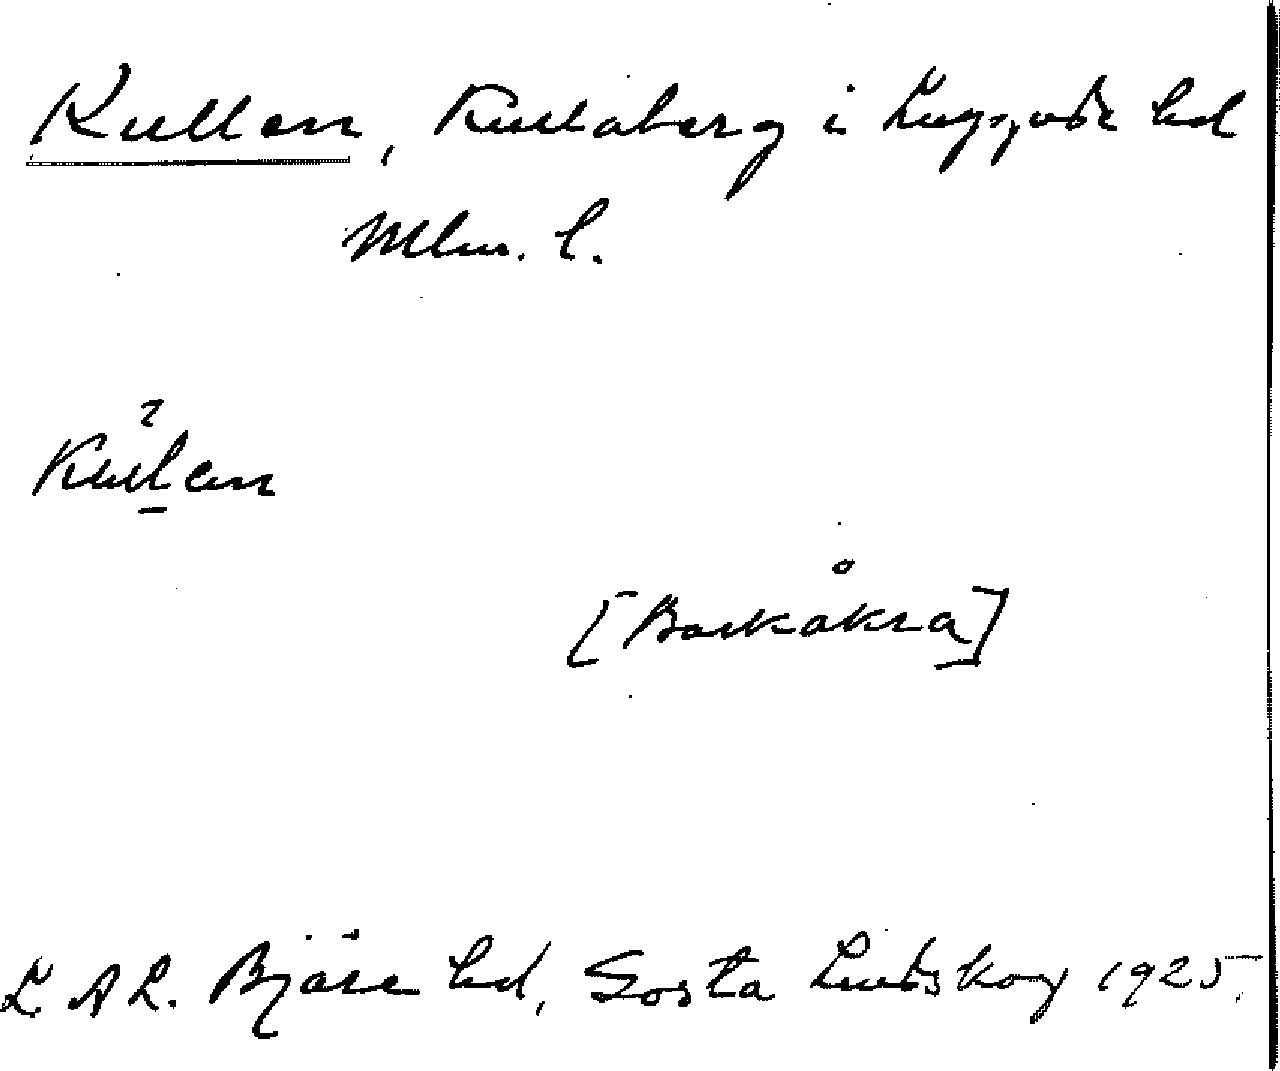 Kullen, Kullaberg i Luggude hd
Mlm. l.
Kullen
[Barkåkra]
L A L. Bjäre hd, Gösta Lundskog 1925.